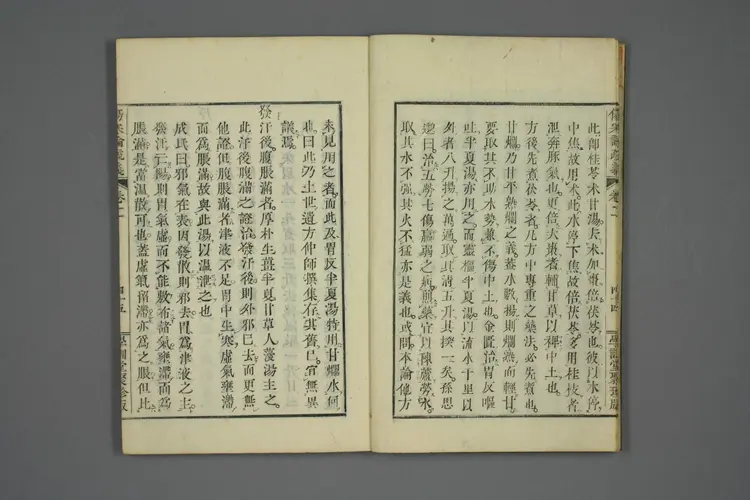 傷寒論疏義 卷二 四十四 學訓堂聚珍版
此卽桂苓朮甘湯去朮加棗倍茯苓也彼以水停
中焦故用朮此水停下焦故倍茯苓多用桂枝者
泄奔豚氣也更倍大棗者輔甘草以裨中土也
方後先煮茯苓者凡方中專重之藥法必先煮也
甘爛乃甘平熟爛之義葢水數揚則爛熟而輕甘
要取其不助水勢兼不傷中土也金匱治胃反嘔
吐半夏湯亦用之而靈樞半夏湯以流水千里以
外者八升揚之萬遍取其清五升其揆一矣孫思
邈曰治五勞七傷羸弱之病煎藥宜以陳蘆勞水
取其水不强其火不猛亦是義也或問本論他方
未見用之者而此及胃反半夏湯特用甘爛水何
也曰此乃上世遺方仲師撰集存其舊已宜無異
議焉
發汗後腹脹滿者厚朴生薑半夏甘草人葠湯主之
此汗後腹滿之證治發汗後則外邪已去而更無
他證但腹脹滿者津液不足胃中生寒虛氣壅滯
而爲脹滿故與此湯以溫泄之也
成氏曰邪氣在表因發散則邪去胃爲津液之主
發汗亡陽則胃氣虛而不能敷布諸氣壅滯而爲
脹滿是當溫散可也葢虛氣留滯亦爲之脹但比
傷寒論疏義 卷二 四十五 學訓堂聚珍版